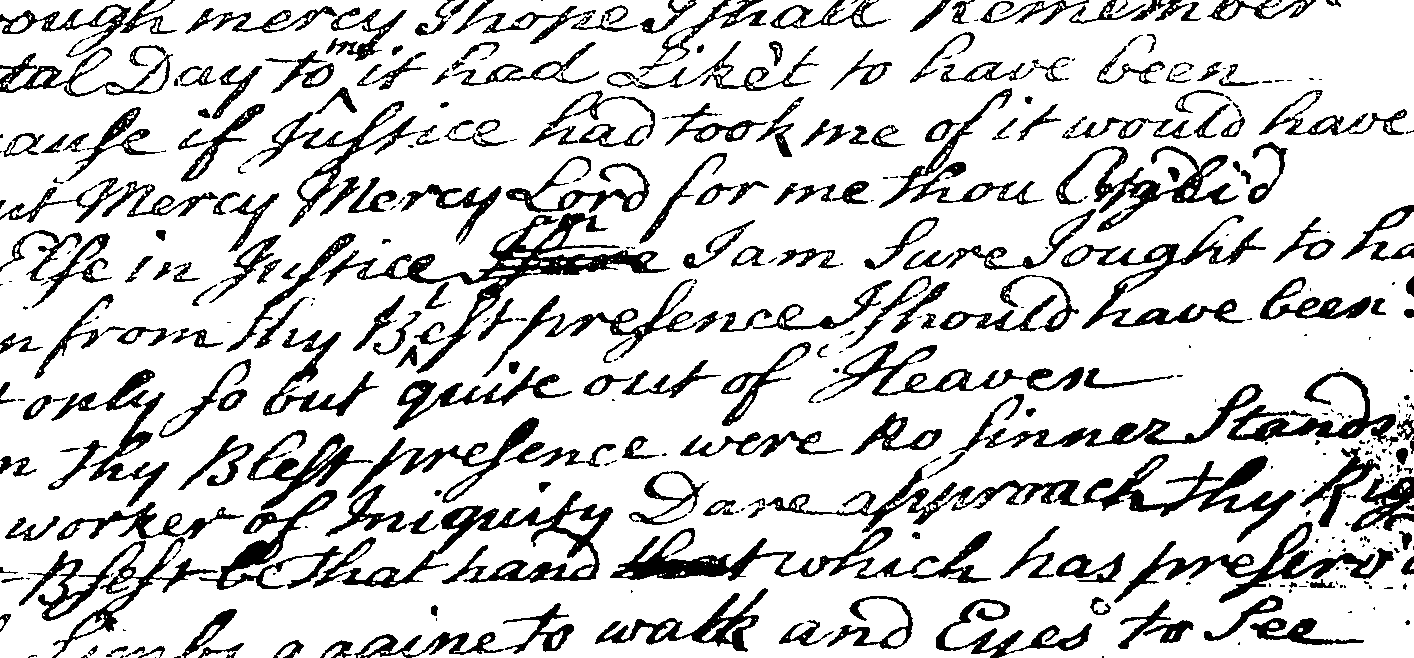 ough mercy I hope I shall Remember
tal Day to me it had Like't to have been
ause if Justice had took me of it would have
ut Mercy Mercy Lord for me thou
Else in Justice for I am Sure I ought to ha
n from thy Blest presence I should have been
t only so but quite out of Heaven
n thy Blest presence were no sinner Stands
worker of Iniquity Dare approach thy Rig
Blest be that hand that which has preserv'd
Limbs againe to walk and Eyes to See